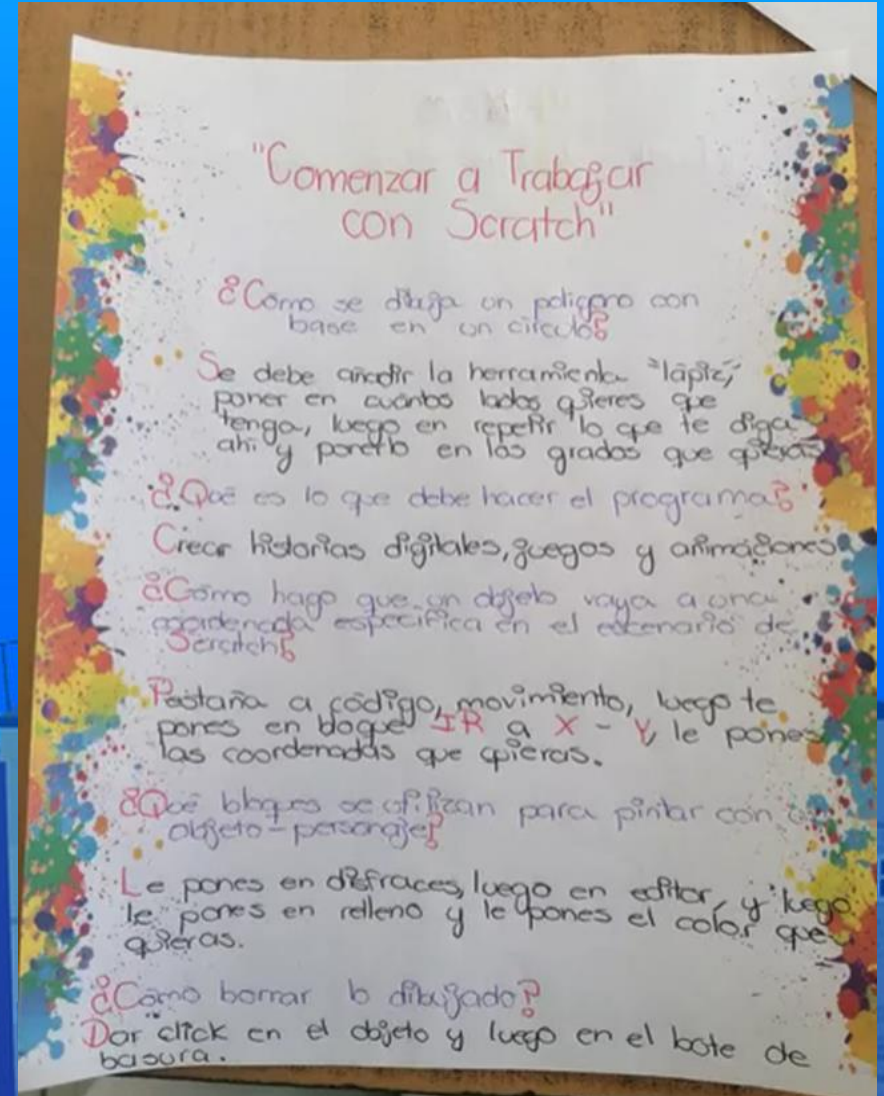 "Comenzar a Trabajar
con Scratch"
¿Cómo se dibuja un polígono con
base en un círculo?
Se debe añadir la herramienta "lápiz,"
poner en cuantos lados quieres que
tenga, luego en repetir lo que te diga
ahí y ponerlo en los grados que quieras
¿Qué es lo que debe hacer el programa?
Crear historias digitales, juegos y animaciones
¿Cómo hago que un objeto vaya a una
coordenada específica en el escenario de
Scratch?
Pestaña a código, movimiento, luego te
pones en bloque IR a X - Y, le pones
las coordenadas que quieras.
¿Qué bloques se utilizan para pintar con un
objeto - personaje?
Le pones en disfraces, luego en editor, y luego
le pones en relleno y le pones el color que
quieras.
¿Cómo borrar lo dibujado?
Dar click en el objeto y luego en el bote de
basura.